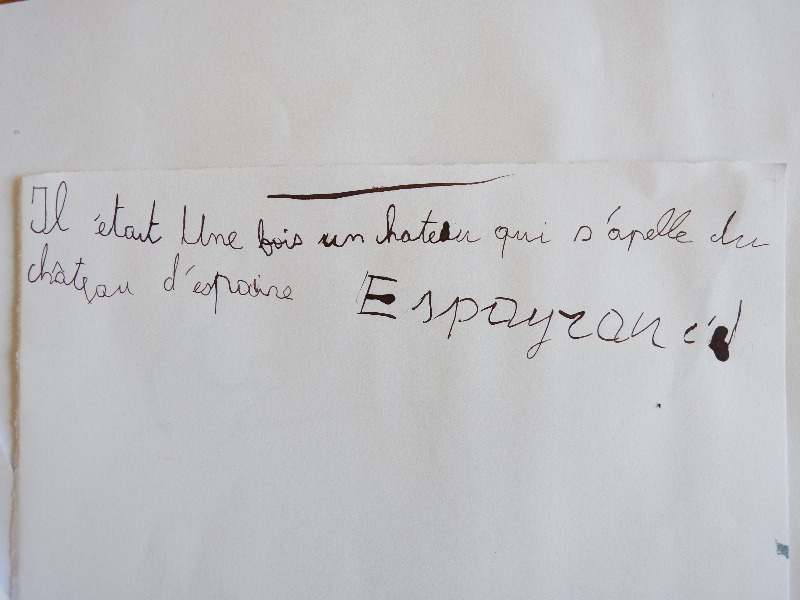 Il était Une fois un hateau qui s'apelle du
château d'espaire Espayran c'd